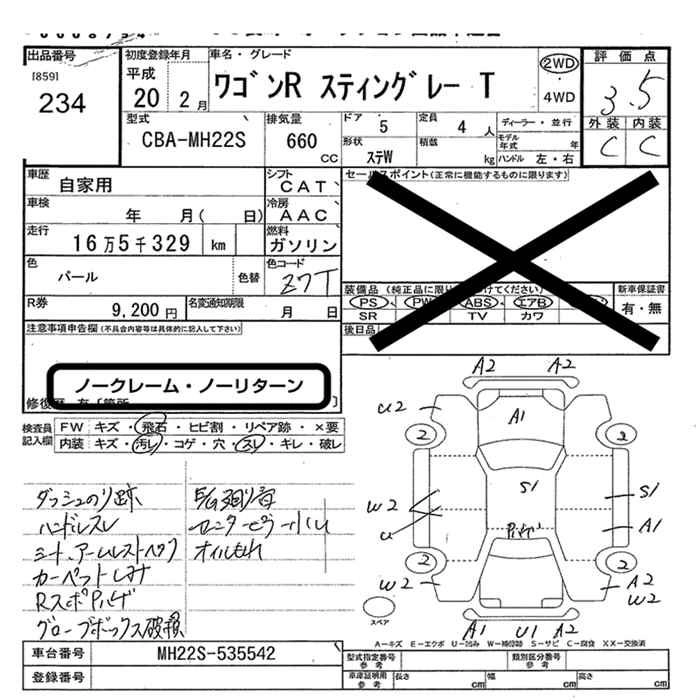 出品番号
[859]
234
初度登録年月
平成
20 2 月
車名・グレード
ワゴンR スティングレー T
2WD
4WD
評価点
3.5
外装 内装
C C
型式
CBA-MH22S
排気量
660 CC
ドア 5
定員 4 人
ディーラー・並行
モデル年式 年
形状 ステW
積載 kg
ハンドル 左・右
車歴
自家用
シフト
CAT
車検
年 月( 日)
冷房
AAC
走行
16万5千329 km
燃料
ガソリン
色
パール
色替
色コード
Z7T
R券
9,200 円
名変通知期限
月 日
セールスポイント(正常に機能するものに限ります)
装備品 (純正品に限り けてください)
PS PW ABS エアB
SR TV カワ
新車保証書
有・無
後日品
注意事項申告欄 (不具合内容等は具体的に記入して下さい)
ノークレーム・ノーリターン
検査員記入欄
FW キズ・飛石・ヒビ割・リペア跡・×要
内装 キズ・汚レ・コゲ・穴・スレ・キレ・破レ
ダッシュのり跡
ハンドルスレ
シート、アームレスト
カーペットしみ
Rスポ Pハゲ
グローブボックス破損
オイルもれ
A2 A2
U2
A1
2 2
S1
S1
W2
U
A1
Pハゲ
2 2
W2
A2
W2
A1 U1 A2
スペア
A-キズ E-エクボ U-凹み W-補修跡 S-サビ C-腐食 XX-交換済
車台番号
MH22S-535542
登録番号
型式指定番号 参考
類別区分番号 参考
車庫証明用 参考
長さ cm 幅 cm 高さ cm